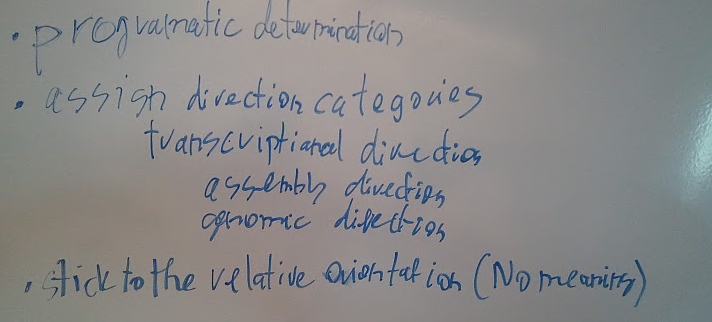 • programatic determination
• assign direction categories
transcriptional direction
assembly direction
genomic direction
• stick to the relative orientation (No meaning)